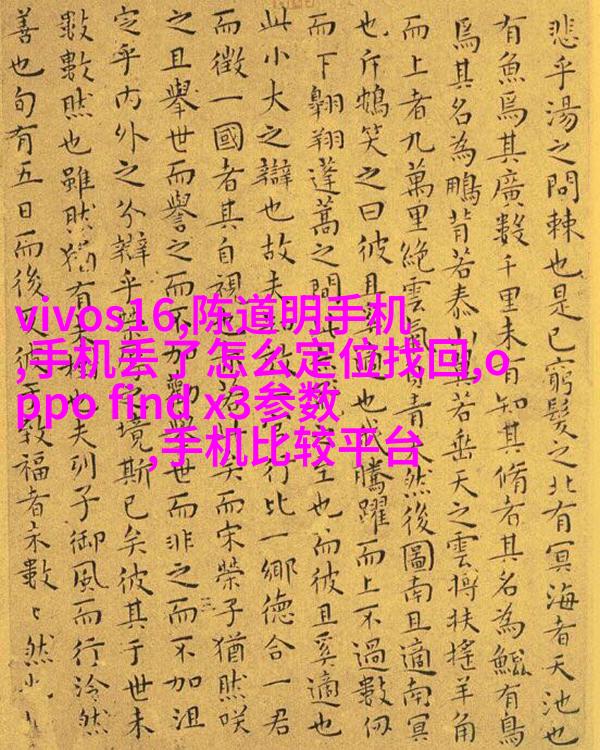 悲乎湯之問棘也是已窮髮之北有冥海者天池也
有魚焉其廣數千里未有知其脩者其名為鯤有鳥
焉其名為鵬背若泰山翼若垂天之雲摶扶搖羊角
而上者九萬里絕雲氣負青天然後圖南且適南冥
也斥鴳笑之曰彼且奚適也我騰躍而上不過數仞
而下翱翔蓬蒿之間此至也而彼且奚適也
此小大之辯也故夫行比一鄉德合一君
而徵一國者其自視也若此矣而宋榮子猶然咲
之且舉世而譽之而不加勸舉世而非之而不加沮
定乎內外之分辯乎榮境斯已矣彼其于世未
數數然也雖然猶有未樹也夫列子御風而行泠然
善也旬有五日而後反彼于致福者未數〻然也
vivos16,陈道明手机
,手机丢了怎么定位找回,o
ppo find x3参数
,手机比较平台